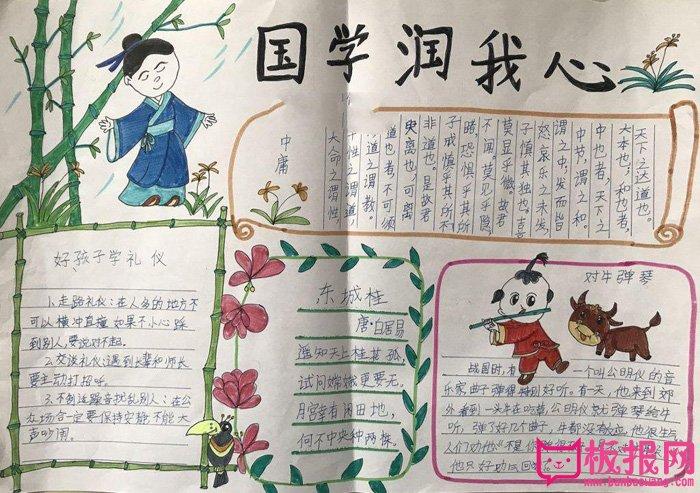 国学润我心
中庸
天命之谓性
率性之谓道,
修道之谓教。
道也者,不可须
臾离也,可离
非道也。是故君
子戒慎乎其所不
睹,恐惧乎其所
不闻。莫见乎隐,
莫显乎微,故君
子慎其独也。喜
怒哀乐之未发
谓之中,发而皆
中节,谓之和。
中也者,天下之
大本也;和也者,
天下之达道也。
好孩子学礼仪
1.走路礼仪:在人多的地方不
可以横冲直撞如果不小心踩
到别人,要说对不起。
2.交谈礼仪:遇到长辈和师长
要主动打招呼。
3.不制造噪音扰乱别人:在公
众场合一定要保持安静,不能大
声吵闹。
东城桂
唐·白居易
遥知天上桂某孤,
试问嫦娥更要无,
月宫幸有闲田地,
何不中央种两株。
对牛弹琴
战国时,有一个叫公明仪的音
乐家曲子弹得特别好听。有一天,他来到郊
外看到一头牛在吃草,公明仪就弹琴给牛
听,弹了好几个曲子,牛都没有反应,他很生气
人们劝他"不是你弹得
他只好叹
板报网
www.banbaowang.com